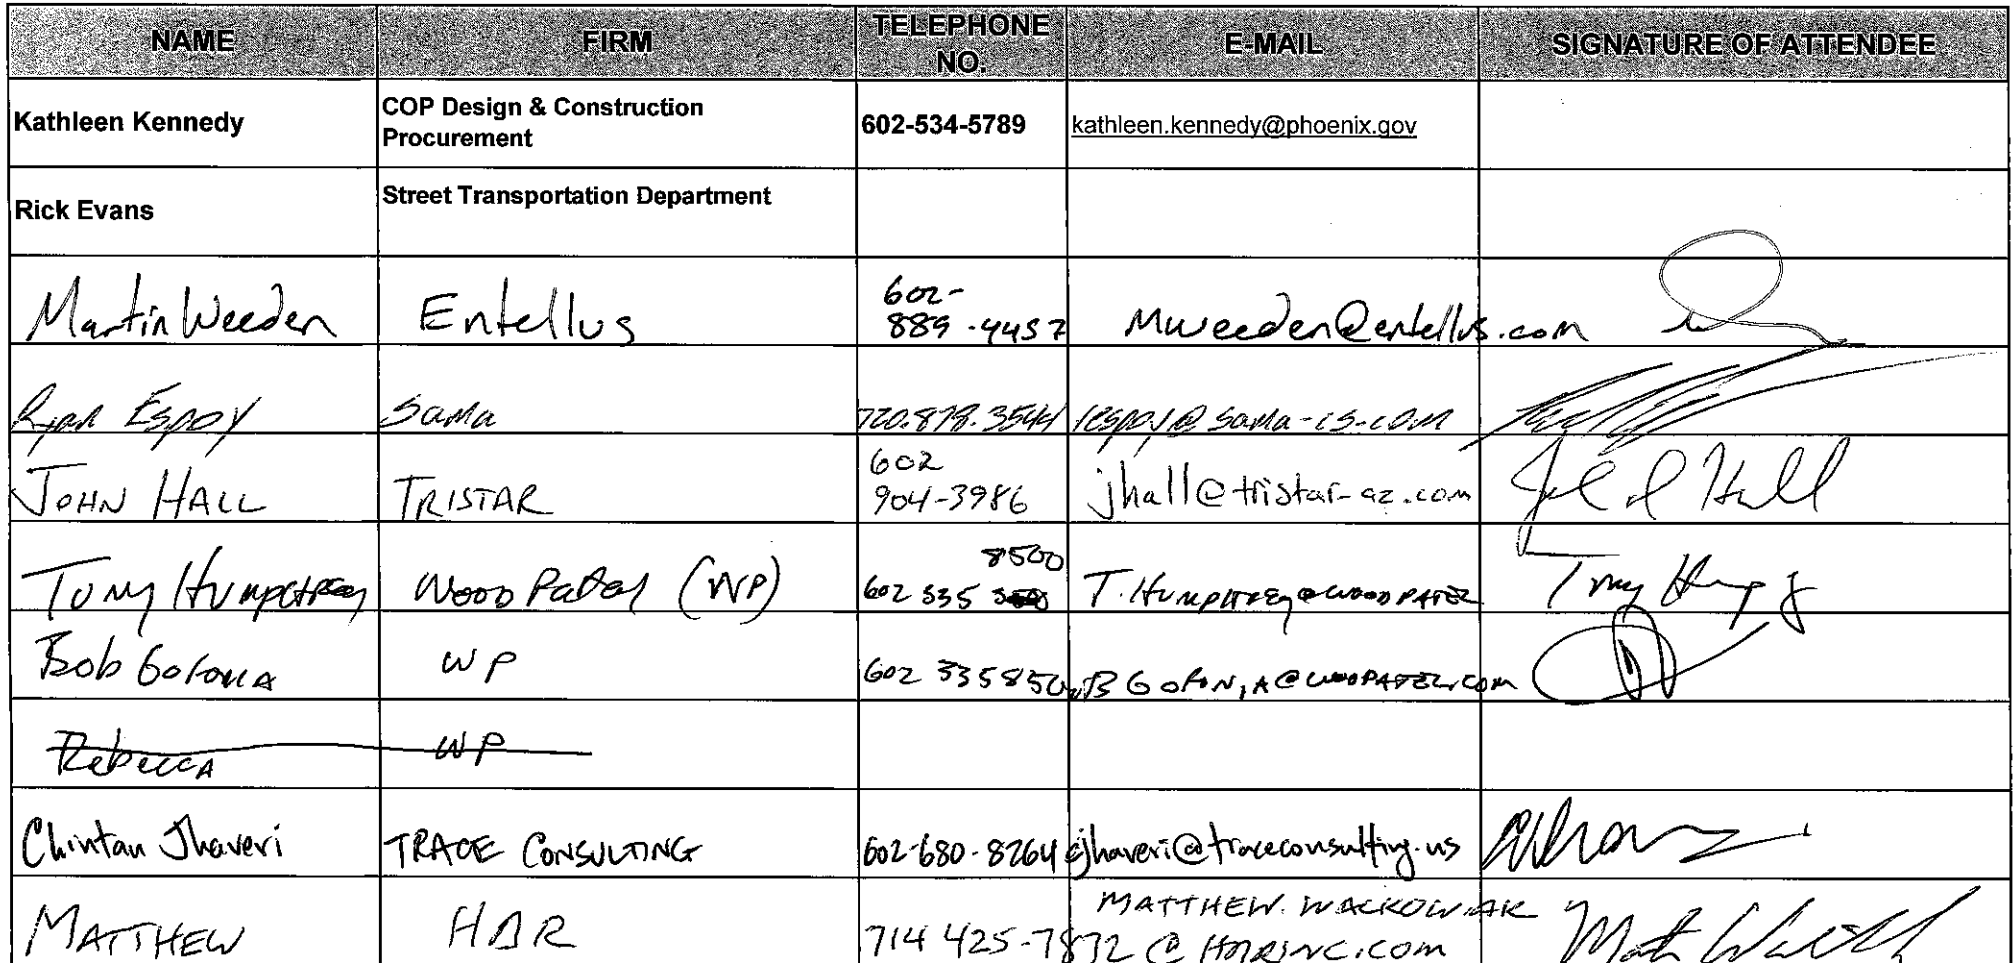 NAME FIRM TELEPHONE NO. E-MAIL SIGNATURE OF ATTENDEE
Kathleen Kennedy COP Design & Construction Procurement 602-534-5789 kathleen.kennedy@phoenix.gov
Rick Evans Street Transportation Department
Martin Weeden Entellus 602-889-4457 Mweeden@entellus.com
Ryan Espoy Sama 720.879.3544 respoy@sama-cs.com
JOHN HALL TRISTAR 602 904-3986 jhall@tristar-az.com
Tony Humphrey Wood Patel (WP) 602 335 8500 T.Humphrey@woodpatel
Bob Gofonia WP 602 3358500 BGofonia@woodpatel.com
Rebecca WP
Chintan Jhaveri TRACE CONSULTING 602-680-8264 cjhaveri@traceconsulting.us
MATTHEW HDR 714 425-7872 MATTHEW.WACKOWIAK@HDRINC.COM